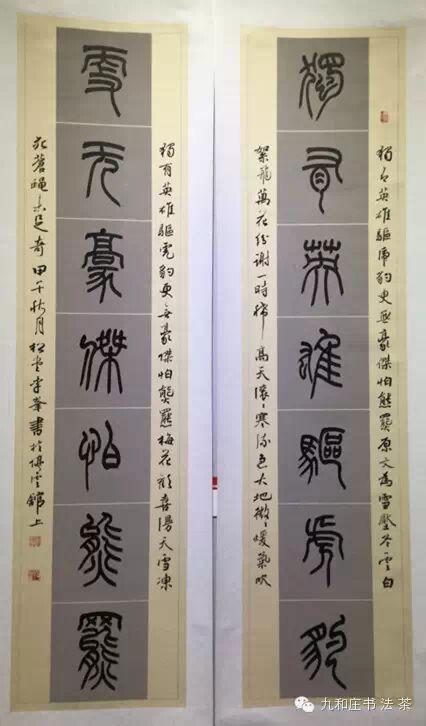 獨有英雄驅虎豹更無豪傑怕熊羆原文為雪壓冬雲白
獨有英雄驅虎豹
絮飛萬花紛謝一時稀高天滾〻寒流急大地微〻暖氣吹
獨有英雄驅虎豹更無豪傑怕熊羆梅花歡喜漫天雪凍
更无豪傑怕熊羆
死蒼蠅未足奇甲午秋月李峯書於館上
九和庄书法茶